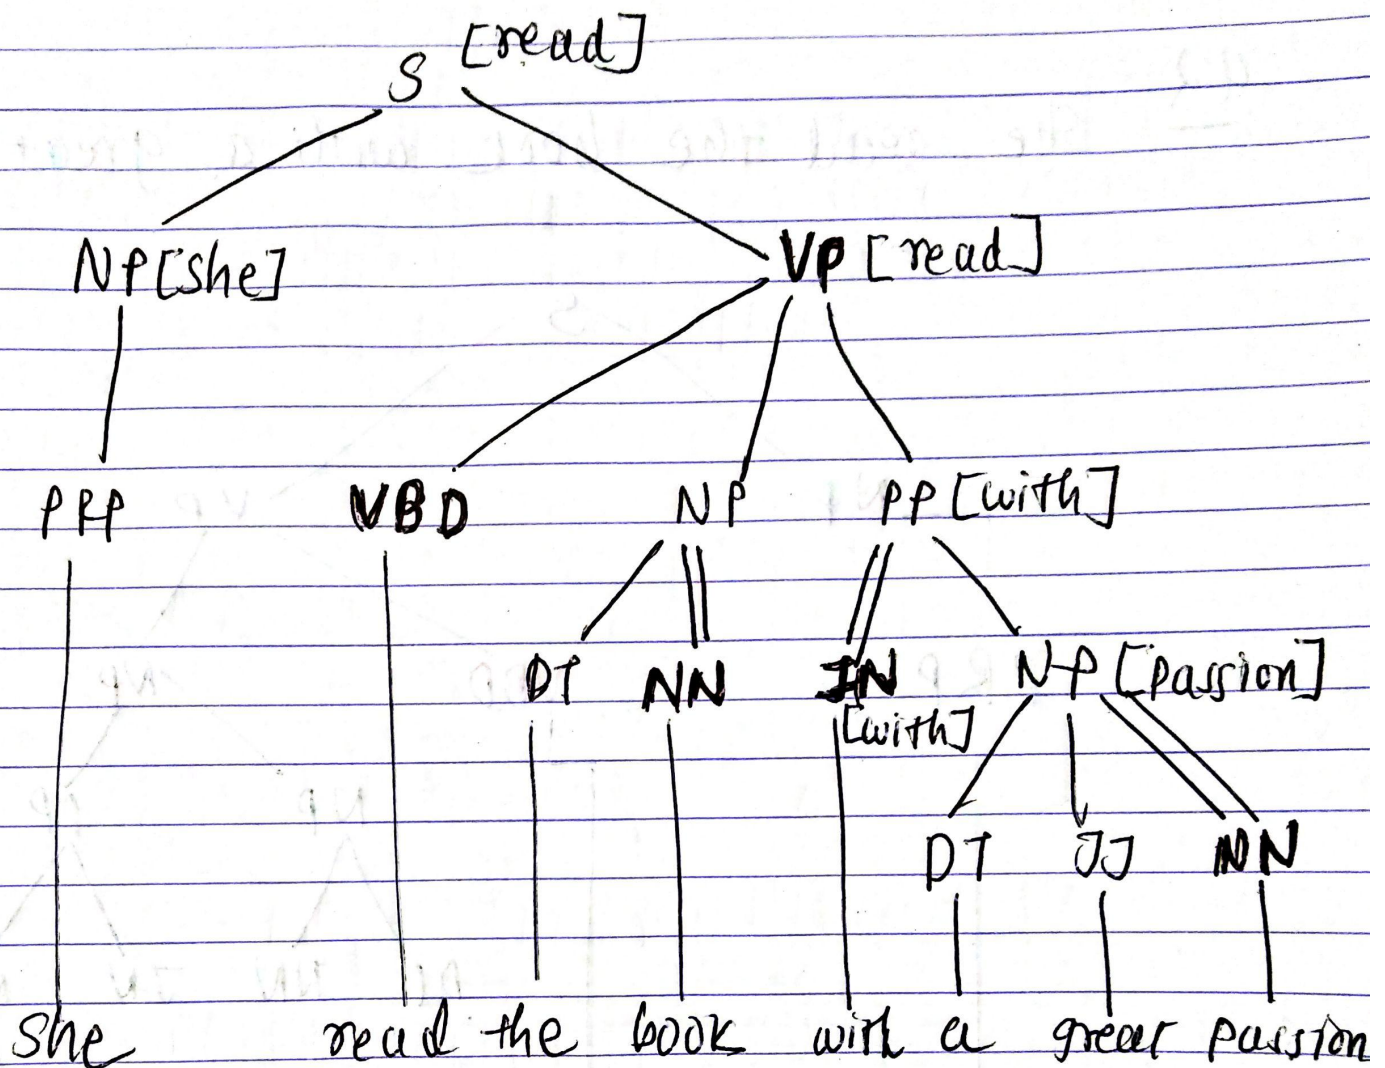 S [read]
NP[she] VP [read]
PRP VBD NP PP [with]
DT NN IN NP [passion]
[with]
DT JJ NN
she read the book with a great passion